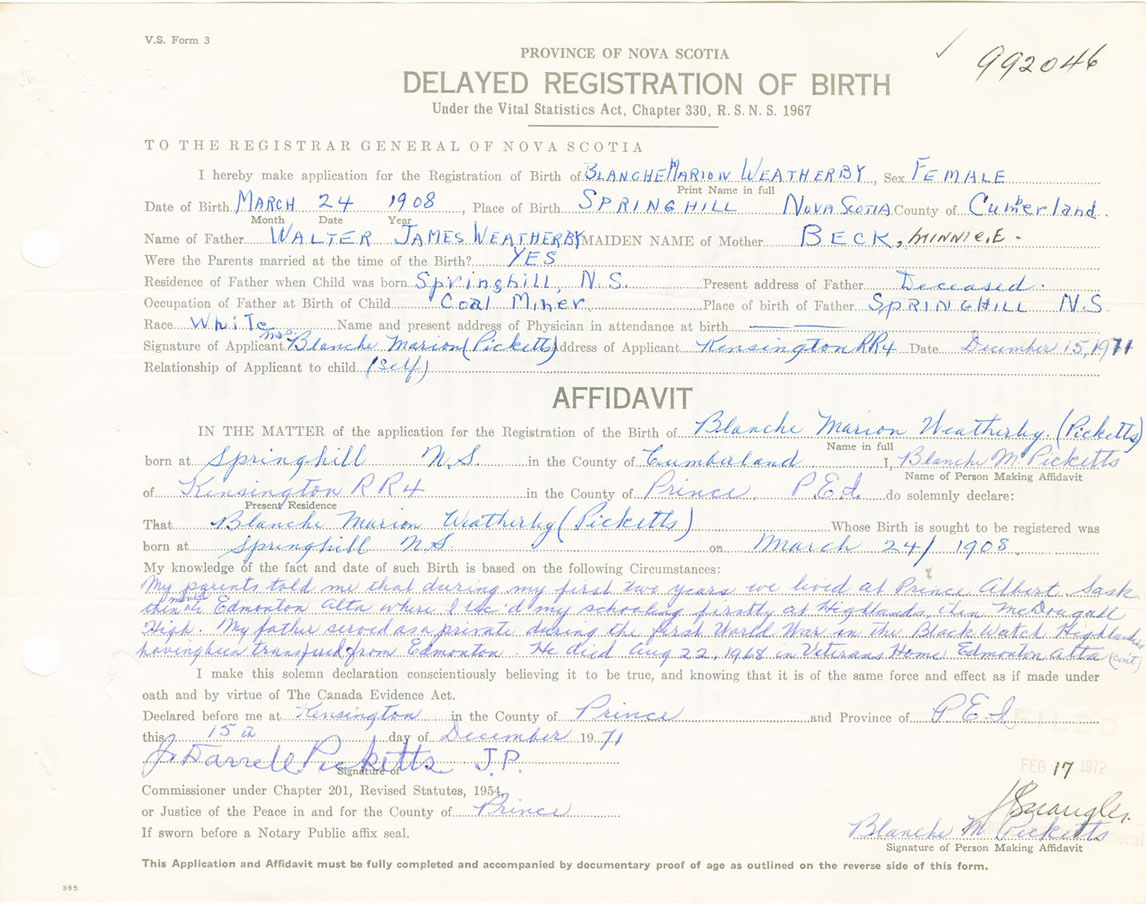 V.S. Form 3
992046
PROVINCE OF NOVA SCOTIA
DELAYED REGISTRATION OF BIRTH
Under the Vital Statistics Act, Chapter 330, R. S. N. S. 1967
TO THE REGISTRAR GENERAL OF NOVA SCOTIA
I hereby make application for the Registration of Birth of BLANCHE MARION WEATHERBY, Sex FEMALE
Print Name in full
Date of Birth MARCH 24 1908, Place of Birth SPRINGHILL NOVA SCOTIA County of Cumberland.
Month Date Year
Name of Father WALTER JAMES WEATHERBY MAIDEN NAME of Mother BECK, MINNIE E.
Were the Parents married at the time of the Birth? YES
Residence of Father when Child was born Springhill, N.S. Present address of Father Deceased.
Occupation of Father at Birth of Child Coal Miner. Place of birth of Father SPRINGHILL N.S.
Race White Name and present address of Physician in attendance at birth
Signature of Applicant Mrs. Blanche Marion (Picketts) Address of Applicant Kensington RR4 Date December 15, 1971
Relationship of Applicant to child (Self)
AFFIDAVIT
IN THE MATTER of the application for the Registration of the Birth of Blanche Marion Weatherby. (Picketts)
Name in full
born at Springhill N.S. in the County of Cumberland I, Blanche M Picketts
Name of Person Making Affidavit
of Kensington RR4 in the County of Prince P.E.I. do solemnly declare:
Present Residence
That Blanche Marion Weatherby (Picketts) Whose Birth is sought to be registered was
born at Springhill N.S. on March 24/ 1908.
My knowledge of the fact and date of such Birth is based on the following Circumstances:
My parents told me that during my first two years we lived at Prince Albert Sask.
then moved to Edmonton Alta where I rec'd my schooling firstly at Highlands, then McDougall
High. My father served as a private during the first World War in the Black Watch Highlanders
having been transfered from Edmonton. He died Aug 22, 1968 in Veterans Home Edmonton Alta (con't)
I make this solemn declaration conscientiously believing it to be true, and knowing that it is of the same force and effect as if made under
oath and by virtue of The Canada Evidence Act.
Declared before me at Kensington in the County of Prince and Province of P.E.I.
this 15th day of December 1971
J. Farrell Picketts J.P.
Signature of
Commissioner under Chapter 201, Revised Statutes, 1954,
or Justice of the Peace in and for the County of Prince
If sworn before a Notary Public affix seal.
FILED
FEB 17 1972
Blanche M Picketts
Signature of Person Making Affidavit
This Application and Affidavit must be fully completed and accompanied by documentary proof of age as outlined on the reverse side of this form.
385